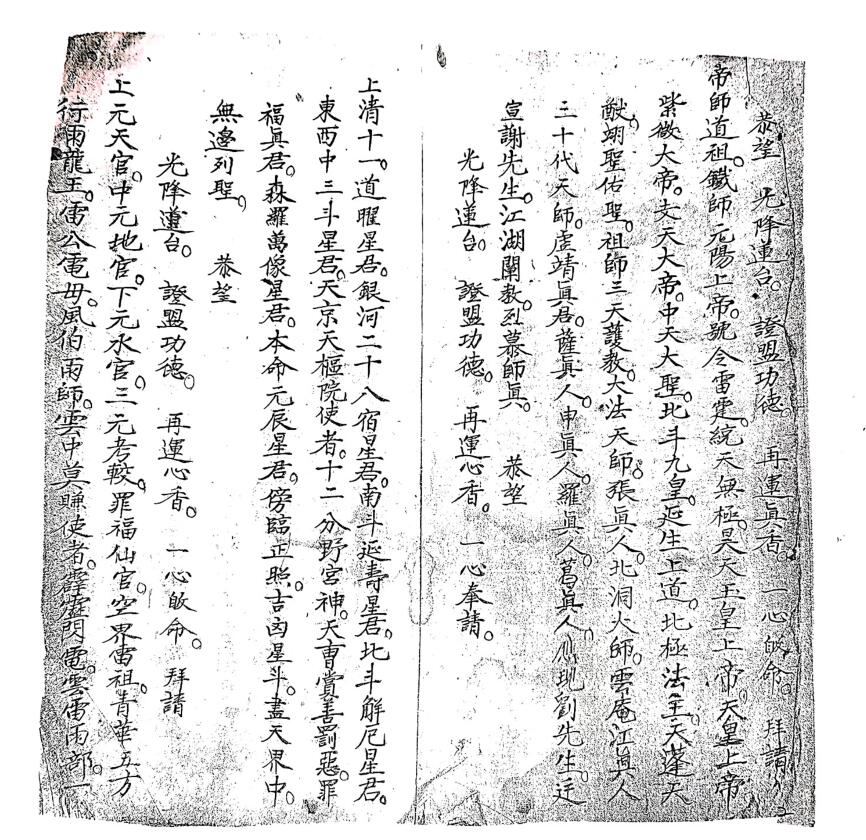 恭望　光降蓮台。證盟功德。再運真香。一心皈命。拜請
帝師道祖。鐵師元陽上帝。號令雷霆。統天無極。昊天玉皇上帝。天皇上帝
紫微大帝。支天大帝。中天大聖。北斗九皇。延生上道。北極法主。天蓬天
猷。翊聖佑聖。祖師三天護教。大法天師。張真人。北洞火師。雲庵江真人
三十代天師。虛靖真君。薩真人。申真人。羅真人。葛真人。應現劉先生。廷
宣謝先生。江湖闡教。列幕師真。　恭望
光降蓮台。證盟功德。再運心香。一心奉請。
上清十一道曜星君。銀河二十八宿星君。南斗延壽星君。北斗解厄星君。
東西中三斗星君。天京天樞院使者。十二分野宮神。天曹賞善罰惡。罪
福真君。森羅萬像星君。本命元辰星君。傍臨正照。吉凶星斗。盡天界中。
無邊列聖。　恭望
光降蓮台。證盟功德。再運心香。一心皈命。拜請
上元天官。中元地官。下元水官。三元考較。罪福仙官。空界雷祖。青華五方
行雨龍王。雷公電母。風伯雨師。雲中莫賺使者。霹靂閃電。雲雷雨部。一